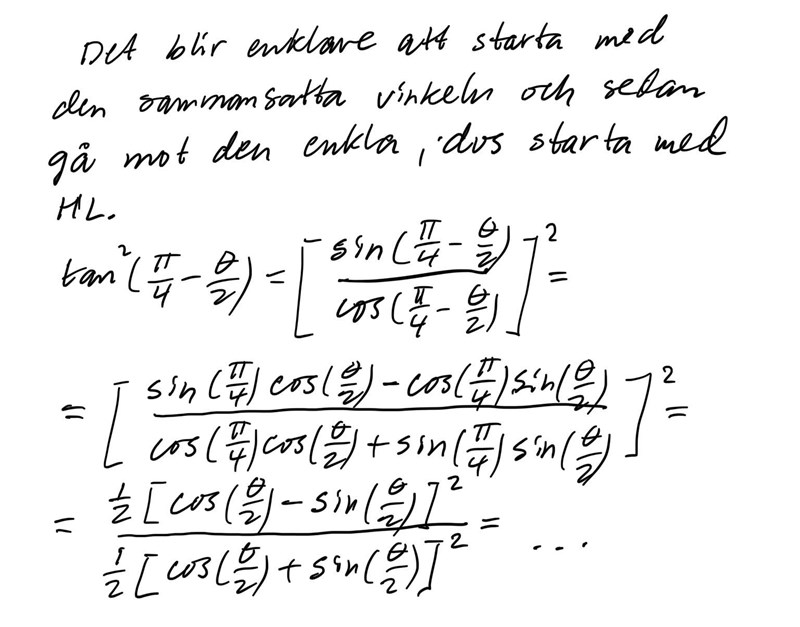 Det blir enklare att starta med
den sammansatta vinkeln och sedan
gå mot den enkla, dvs starta med
HL.
tan²(π/4 − θ/2) = [sin(π/4 − θ/2) / cos(π/4 − θ/2)]² =
= [(sin(π/4) cos(θ/2) − cos(π/4) sin(θ/2)) / (cos(π/4) cos(θ/2) + sin(π/4) sin(θ/2))]² =
= (1/2 [cos(θ/2) − sin(θ/2)]²) / (1/2 [cos(θ/2) + sin(θ/2)]²) = ...